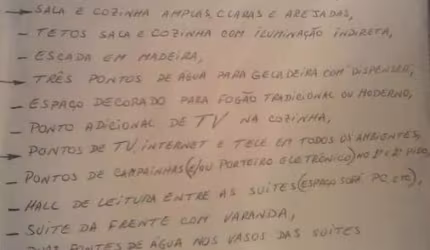 → SALA E COZINHA AMPLAS, CLARAS E AREJADAS,
- TETOS SALA E COZINHA COM ILUMINAÇÃO INDIRETA,
- ESCADA EM MADEIRA,
→ TRÊS PONTOS DE ÁGUA PARA GELADEIRA COM DISPENSER,
- ESPAÇO DECORADO PARA FOGÃO TRADICIONAL OU MODERNO,
- PONTO ADICIONAL DE TV NA COZINHA,
→ PONTOS DE TV, INTERNET E TELE EM TODOS OS AMBIENTES,
- PONTOS DE CAMPAINHAS (E/OU PORTEIRO ELETRÔNICO) NO 1º E 2º PISO,
- HALL DE LEITURA ENTRE AS SUÍTES (ESPAÇO SOFÁ, PC, ETC),
- SUÍTE DA FRENTE COM VARANDA,
PONTES DE ÁGUA NOS VASOS DAS SUÍTES